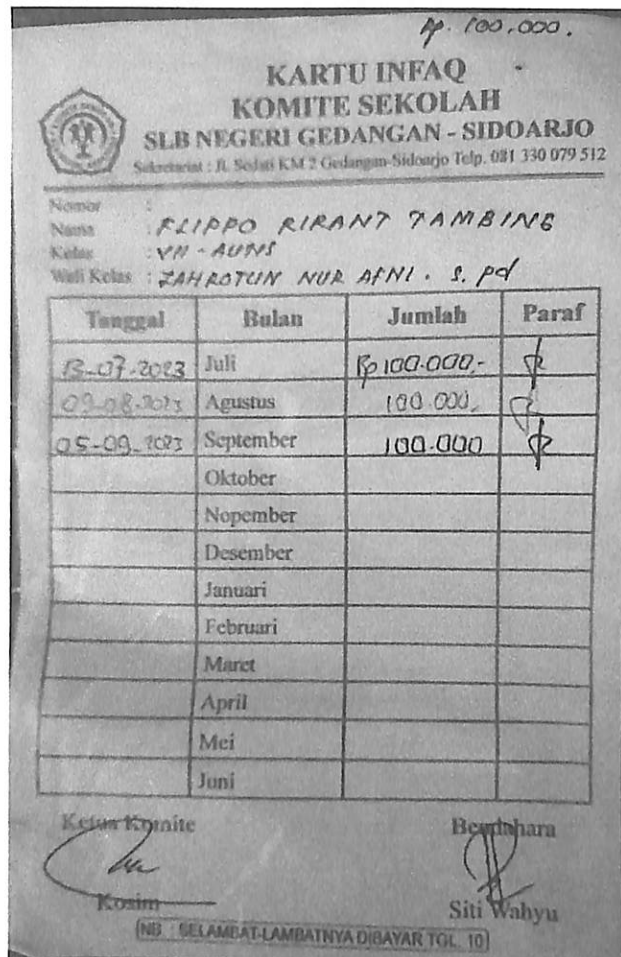 Rp. 100.000.
KARTU INFAQ
KOMITE SEKOLAH
SLB NEGERI GEDANGAN - SIDOARJO
Sekretariat : Jl. Sedati KM 2 Gedangan-Sidoarjo Telp. 081 330 079 512
Nomor :
Nama : FLIPPO RIRANT TAMBING
Kelas : VII - AUTIS
Wali Kelas : ZAHROTUN NUR AFNI . S. Pd
Tanggal Bulan Jumlah Paraf
13-07-2023 Juli Rp 100.000,-
09-08-2023 Agustus 100.000,
05-09-2023 September 100.000
Oktober
Nopember
Desember
Januari
Februari
Maret
April
Mei
Juni
Ketua Komite Bendahara
Kosim Siti Wahyu
NB : SELAMBAT-LAMBATNYA DIBAYAR TGL. 10